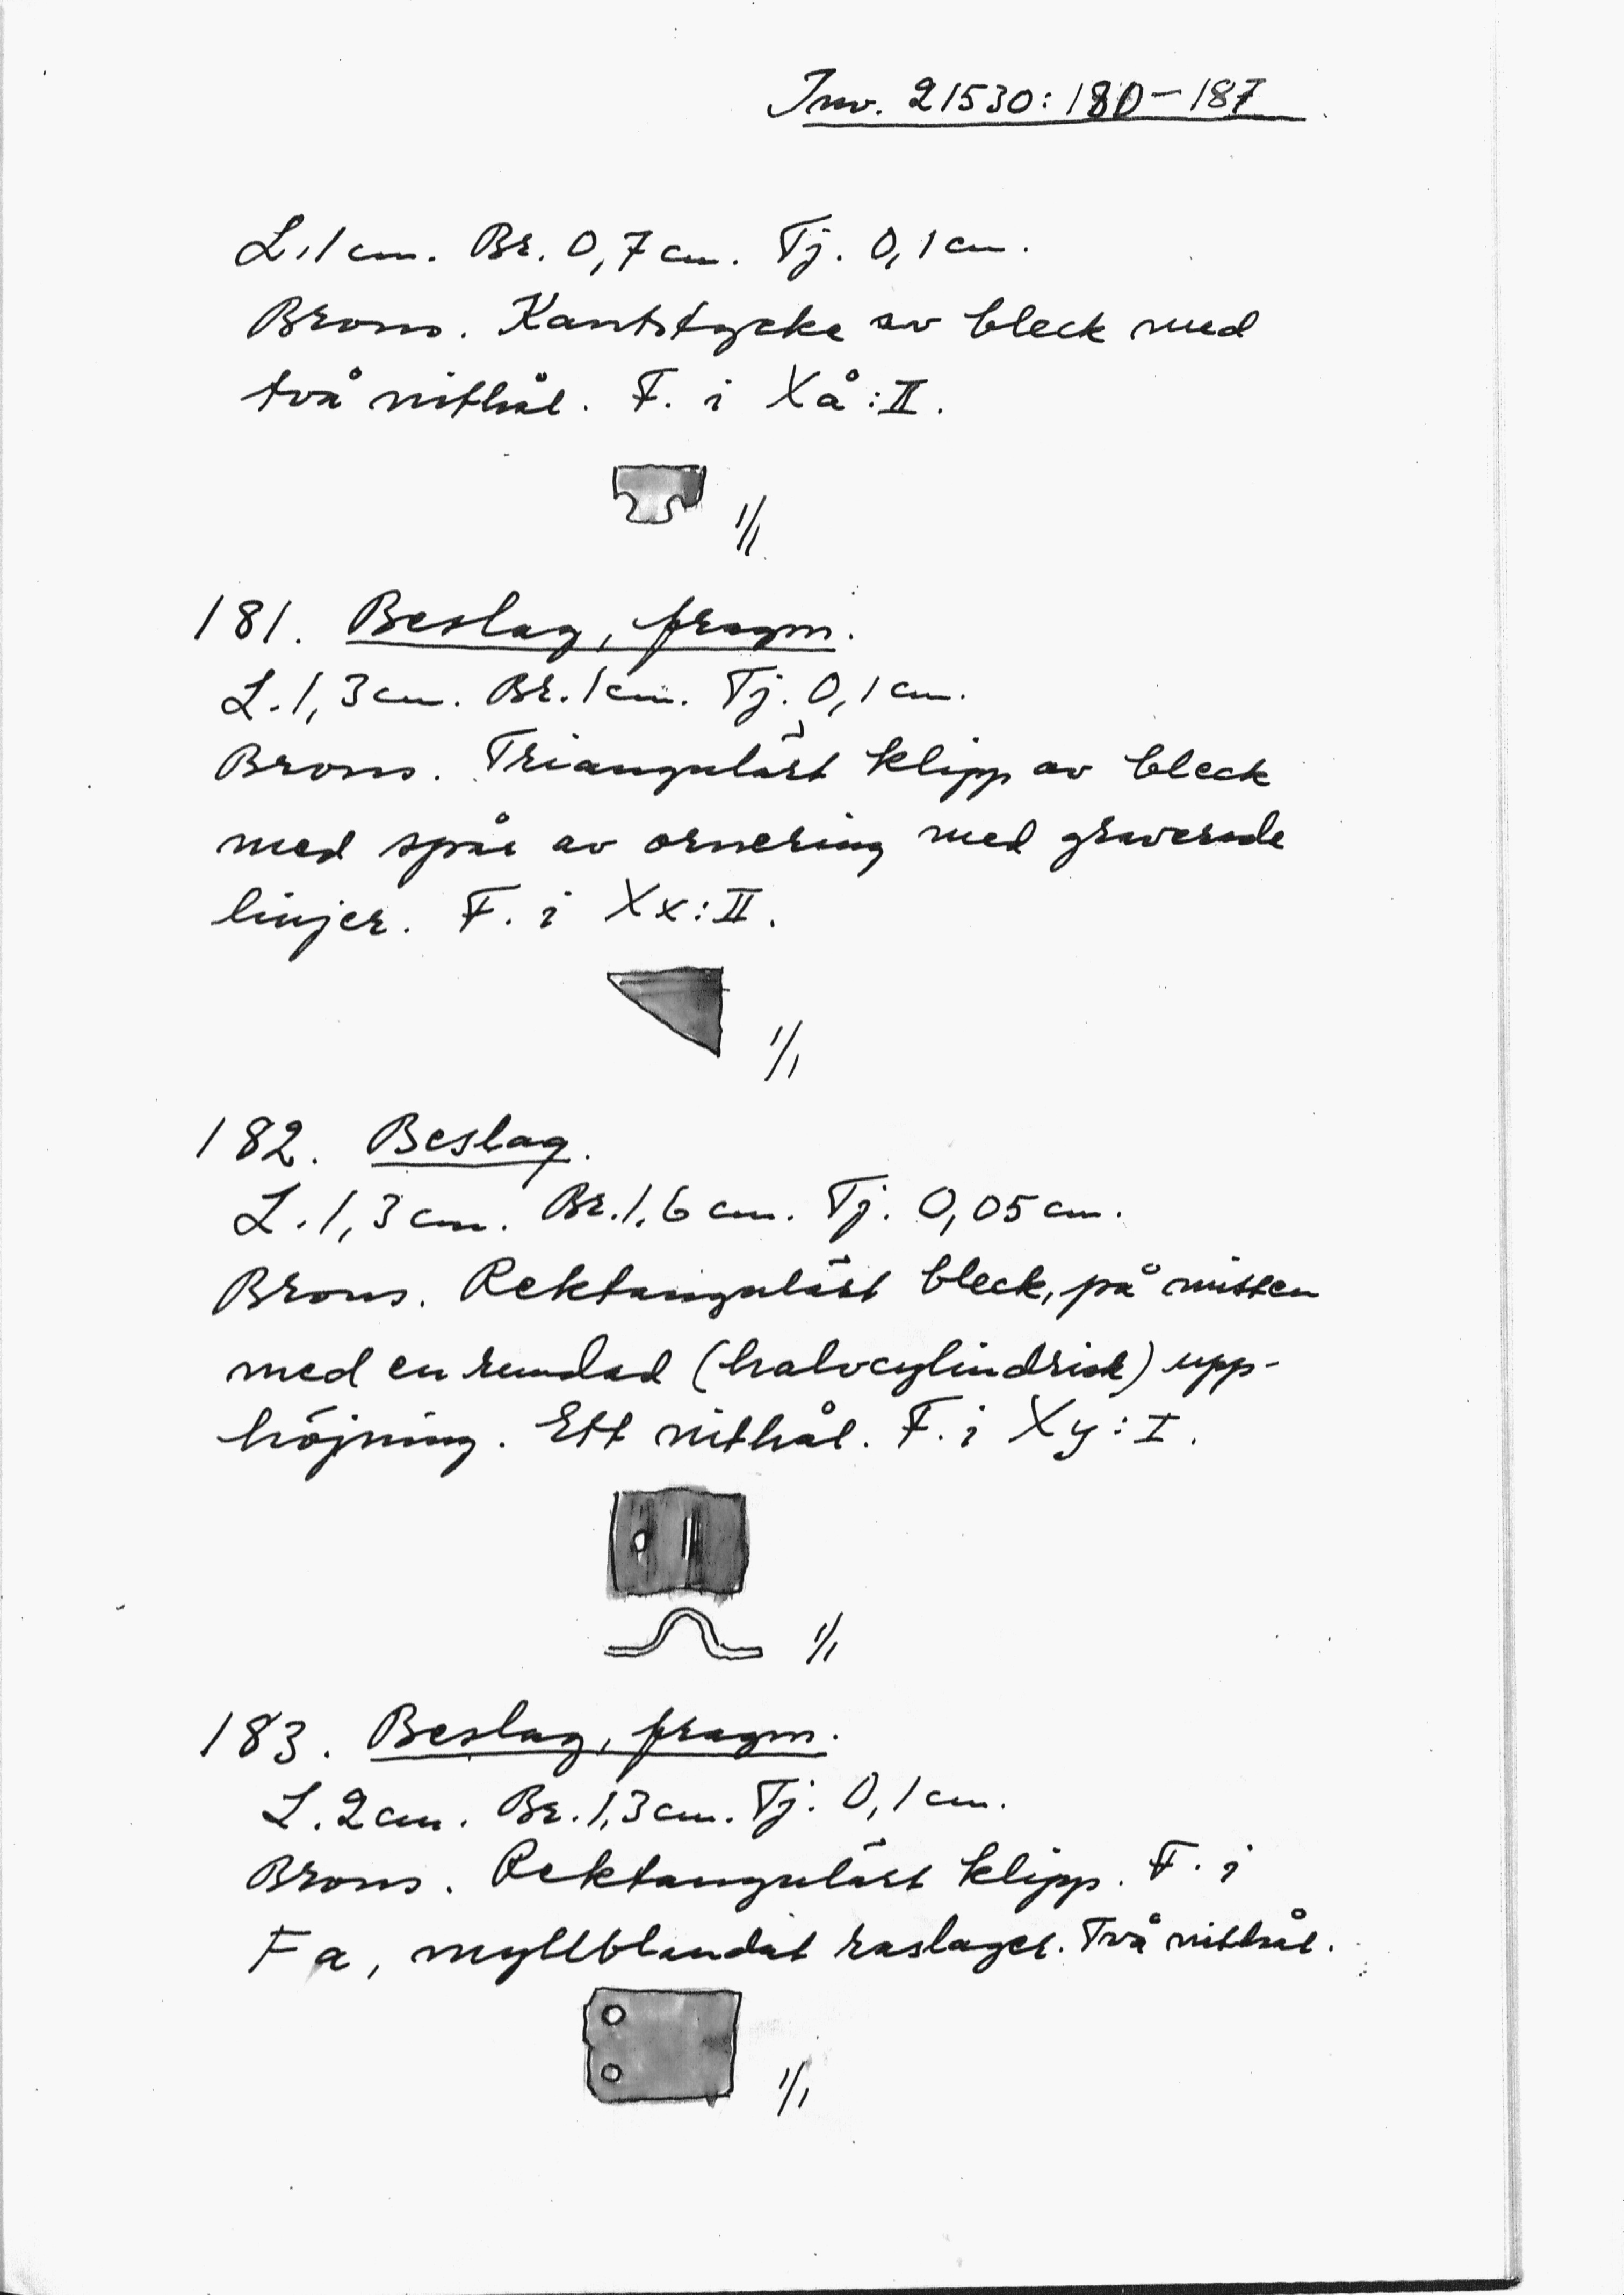 Inv. 21530:180-187
L. 1 cm. Br. 0,7 cm. Tj. 0,1 cm.
Brons. Kantstycke av bleck med
två nithål. F. i Xå:II.
1/1
181. Beslag, fragm.
L. 1,3 cm. Br. 1 cm. Tj. 0,1 cm.
Brons. Triangulärt klipp av bleck
med spår av ornering med graverade
linjer. F. i Xx:II.
1/1
182. Beslag.
L. 1,3 cm. Br. 1,6 cm. Tj. 0,05 cm.
Brons. Rektangulärt bleck, på mitten
med en rundad (halvcylindrisk) upp-
höjning. Ett nithål. F. i Xy:I.
1/1
183. Beslag, fragm.
L. 2 cm. Br. 1,3 cm. Tj. 0,1 cm.
Brons. Rektangulärt klipp. F. i
Fa, myllblandat raslager. Två nithål.
1/1